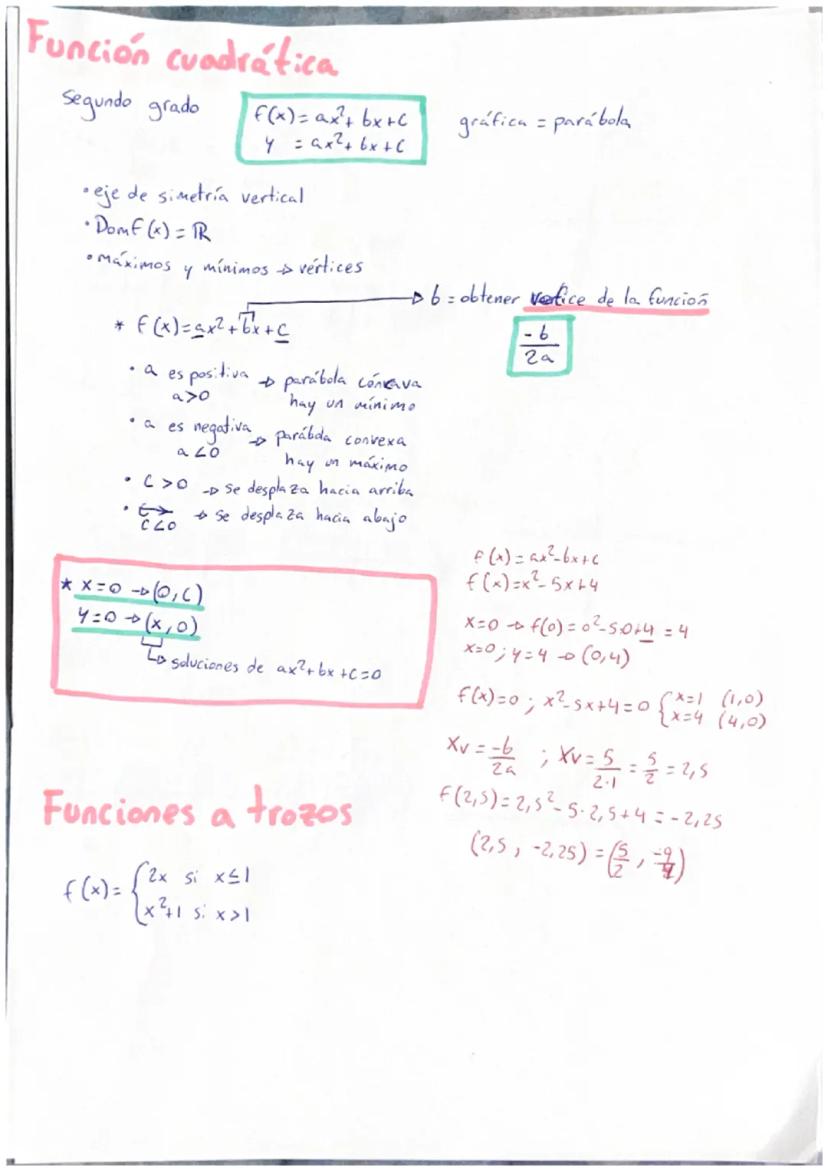 Función cuadrática
Segundo grado
f(x) = ax²+ bx+c
y = ax²+ bx+c
gráfica = parábola
• eje de simetría vertical
• Dom f(x) = ℝ
• máximos y mínimos → vértices
* f(x)=ax²+bx+c
→ b = obtener vertice de la función
-b
2a
• a es positiva → parábola cóncava
a>0 hay un mínimo
• a es negativa → parábola convexa
a<0 hay un máximo
• C>0 → se desplaza hacia arriba
• C<0 → se desplaza hacia abajo
* x=0 → (0,C)
y=0 → (x,0)
↳ soluciones de ax²+bx+c=0
f(x) = ax²-bx+c
f(x)=x²-5x+4
x=0 → f(0)=0²-5·0+4 = 4
x=0; y=4 → (0,4)
f(x)=0 ; x²-5x+4=0 { x=1 (1,0)
x=4 (4,0)
Xv = -b/2a ; Xv = 5/2·1 = 5/2 = 2,5
f(2,5)=2,5²-5·2,5+4 = -2,25
(2,5 , -2,25) = (5/2 , -9/4)
Funciones a trozos
f(x) = { 2x si x≤1
x²+1 si x>1